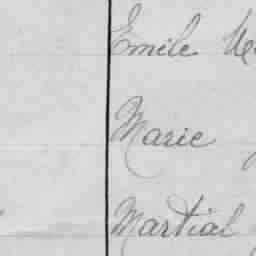 Emile
Marie
Martial